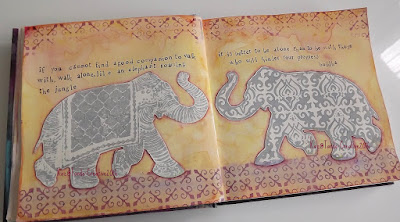 if you cannot find a good companion to walk
with, walk alone, like an elephant roaming
the jungle
it is better to be alone than to be with those
who will hinder your progress
buddha